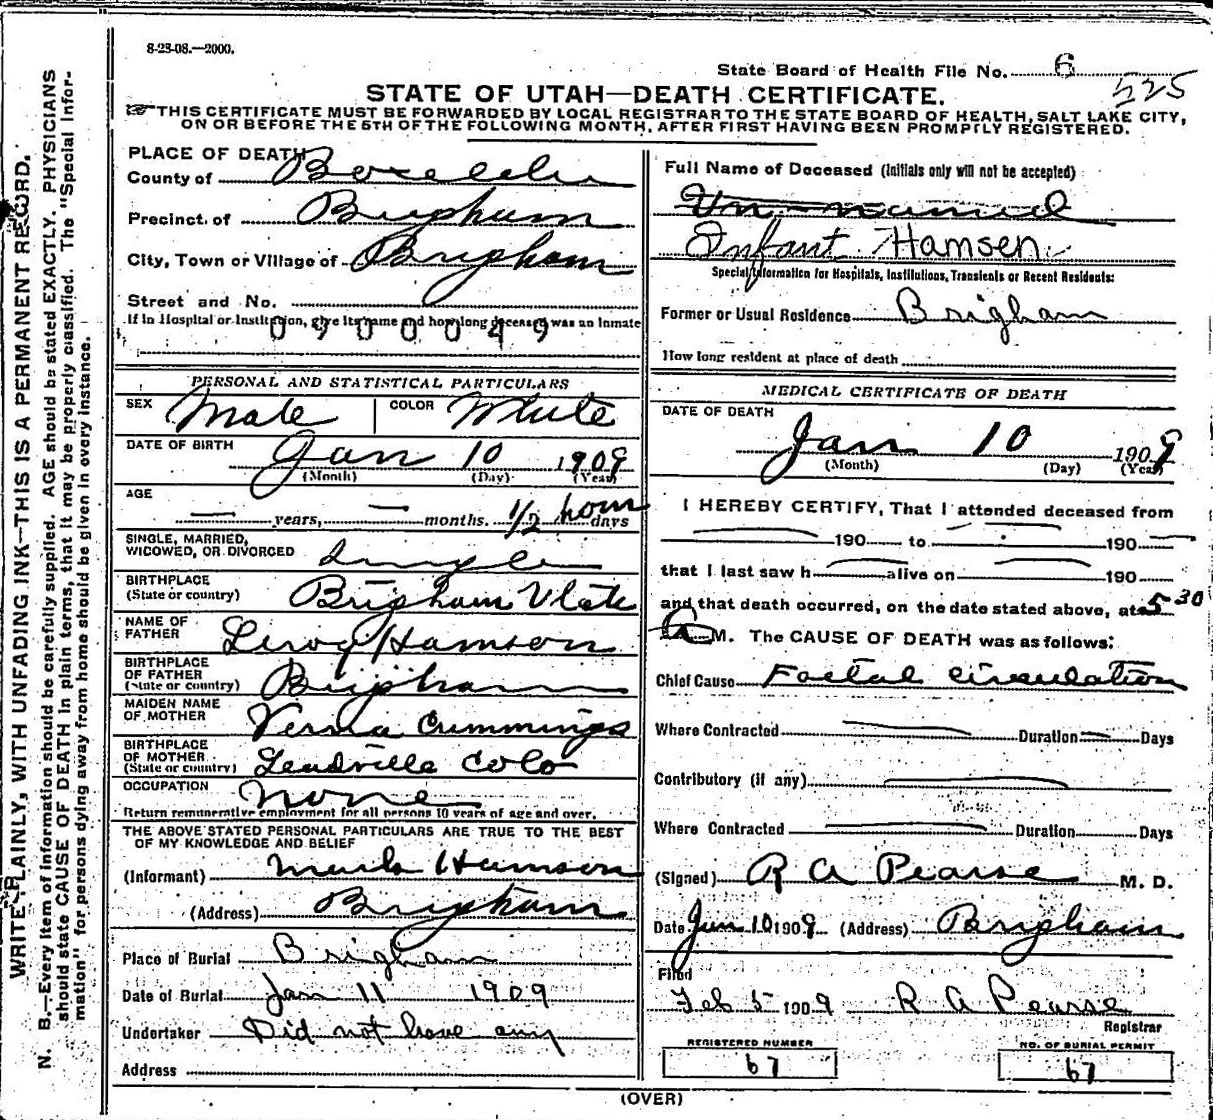 8-23-08.—2000.
State Board of Health File No. 6
525
STATE OF UTAH—DEATH CERTIFICATE.
THIS CERTIFICATE MUST BE FORWARDED BY LOCAL REGISTRAR TO THE STATE BOARD OF HEALTH, SALT LAKE CITY,
ON OR BEFORE THE 5TH OF THE FOLLOWING MONTH, AFTER FIRST HAVING BEEN PROMPTLY REGISTERED.
WRITE PLAINLY, WITH UNFADING INK—THIS IS A PERMANENT RECORD.
N. B.—Every item of information should be carefully supplied. AGE should be stated EXACTLY. PHYSICIANS
should state CAUSE OF DEATH in plain terms, that it may be properly classified. The "Special Infor-
mation" for persons dying away from home should be given in every instance.
PLACE OF DEATH
County of Boxelder
Precinct of Brigham
City, Town or Village of Brigham
Street and No.
If in Hospital or Institution, give its name and how long deceased was an Inmate
0900049
PERSONAL AND STATISTICAL PARTICULARS
SEX Male COLOR White
DATE OF BIRTH Jan 10 1909
(Month) (Day) (Year)
AGE
— years, — months. 1/2 hour days
SINGLE, MARRIED,
WIDOWED, OR DIVORCED Single
BIRTHPLACE
(State or country) Brigham Utah
NAME OF
FATHER Leroy Hamson
BIRTHPLACE
OF FATHER
(State or country) Brigham
MAIDEN NAME
OF MOTHER Verna Cummings
BIRTHPLACE
OF MOTHER
(State or country) Leadville Colo
OCCUPATION none
Return remunerative employment for all persons 10 years of age and over.
THE ABOVE STATED PERSONAL PARTICULARS ARE TRUE TO THE BEST
OF MY KNOWLEDGE AND BELIEF
(Informant) Mark Hamson
(Address) Brigham
Place of Burial Brigham
Date of Burial Jan 11 1909
Undertaker Did not have any
Address
Full Name of Deceased (Initials only will not be accepted)
Un-named
Infant Hamsen
Special Information for Hospitals, Institutions, Transients or Recent Residents:
Former or Usual Residence Brigham
How long resident at place of death
MEDICAL CERTIFICATE OF DEATH
DATE OF DEATH
Jan 10 1909
(Month) (Day) (Year)
I HEREBY CERTIFY, That I attended deceased from
190 to 190
that I last saw h alive on 190
and that death occurred, on the date stated above, at 5 30
A M. The CAUSE OF DEATH was as follows:
Chief Cause Foetal circulation
Where Contracted Duration Days
Contributory (if any)
Where Contracted Duration Days
(Signed) R A Pearse M. D.
Date Jan 10 1909 (Address) Brigham
Filed
Feb 5 1909 R A Pearse
Registrar
REGISTERED NUMBER
67
NO. OF BURIAL PERMIT
67
(OVER)